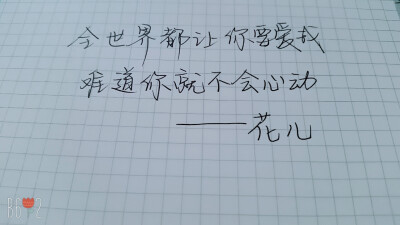 全世界都让你要爱我
难道你就不会心动
——花儿